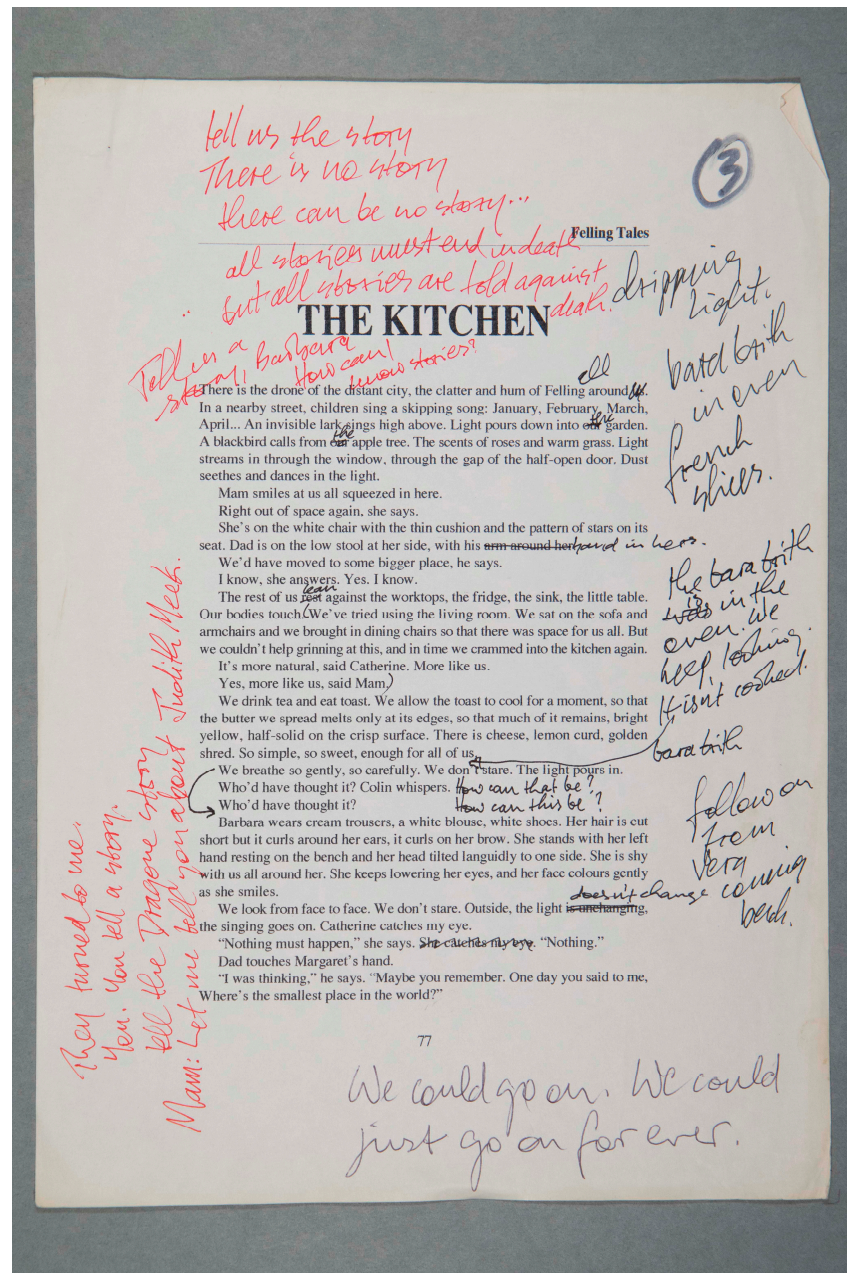 tell us the story
There is no story
there can be no story...
3
Felling Tales
all stories must end in death
but all stories are told against
death.
dripping
light.
THE KITCHEN
Tell us a
story, Barbara
How can I
know stories?
bara brith
in oven
french
slices.
all
There is the drone of the distant city, the clatter and hum of Felling around us.
In a nearby street, children sing a skipping song: January, February, March,
the
April... An invisible lark sings high above. Light pours down into our garden.
the
A blackbird calls from our apple tree. The scents of roses and warm grass. Light
streams in through the window, through the gap of the half-open door. Dust
seethes and dances in the light.
Mam smiles at us all squeezed in here.
Right out of space again, she says.
She's on the white chair with the thin cushion and the pattern of stars on its
seat. Dad is on the low stool at her side, with his arm around her hand in hers.
We'd have moved to some bigger place, he says.
I know, she answers. Yes. I know.
lean
The rest of us rest against the worktops, the fridge, the sink, the little table.
Our bodies touch. We've tried using the living room. We sat on the sofa and
armchairs and we brought in dining chairs so that there was space for us all. But
we couldn't help grinning at this, and in time we crammed into the kitchen again.
It's more natural, said Catherine. More like us.
Yes, more like us, said Mam.
We drink tea and eat toast. We allow the toast to cool for a moment, so that
the butter we spread melts only at its edges, so that much of it remains, bright
yellow, half-solid on the crisp surface. There is cheese, lemon curd, golden
shred. So simple, so sweet, enough for all of us.
We breathe so gently, so carefully. We don't stare. The light pours in.
Who'd have thought it? Colin whispers. How can that be?
Who'd have thought it? How can this be?
Barbara wears cream trousers, a white blouse, white shoes. Her hair is cut
short but it curls around her ears, it curls on her brow. She stands with her left
hand resting on the bench and her head tilted languidly to one side. She is shy
with us all around her. She keeps lowering her eyes, and her face colours gently
as she smiles.
doesn't change
We look from face to face. We don't stare. Outside, the light is unchanging,
the singing goes on. Catherine catches my eye.
"Nothing must happen," she says. She catches my eye. "Nothing."
Dad touches Margaret's hand.
"I was thinking," he says. "Maybe you remember. One day you said to me,
Where's the smallest place in the world?"
the bara brith
is
was in the
oven. We
keep looking.
It isn't cooked.
bara brith
follow on
from
Vera
coming
back.
They turned to me.
You. You tell a story.
tell the Dragone story
Mam: Let me tell you about Judith Meek.
77
We could go on. We could
just go on for ever.